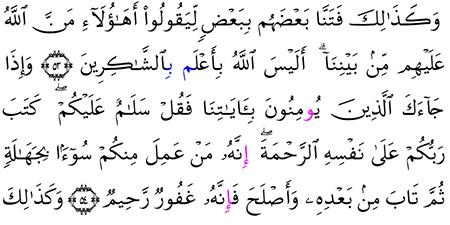 وَكَذَٰلِكَ فَتَنَّا بَعْضَهُم بِبَعْضٍ لِّيَقُولُوٓاْ أَهَٰٓؤُلَآءِ مَنَّ ٱللَّهُ
عَلَيْهِم مِّنۢ بَيْنِنَآۗ أَلَيْسَ ٱللَّهُ بِأَعْلَمَ بِٱلشَّٰكِرِينَ ۝٥٣ وَإِذَا
جَآءَكَ ٱلَّذِينَ يُومِنُونَ بِـَٔايَٰتِنَا فَقُلْ سَلَٰمٌ عَلَيْكُمْۖ كَتَبَ
رَبُّكُمْ عَلَىٰ نَفْسِهِ ٱلرَّحْمَةَۖ إِنَّهُۥ مَنْ عَمِلَ مِنكُمْ سُوٓءَۢا بِجَهَٰلَةٖ
ثُمَّ تَابَ مِنۢ بَعْدِهِۦ وَأَصْلَحَ فَإِنَّهُۥ غَفُورٞ رَّحِيمٞ ۝٥٤ وَكَذَٰلِكَ